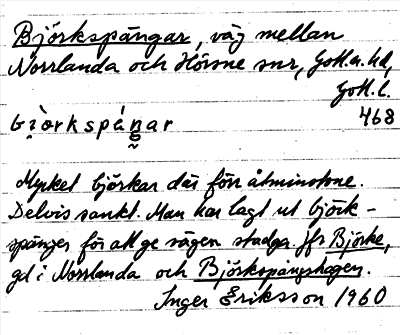 Björkspängar, väg mellan
Norrlanda och Hörsne snr, Gotl. n. hd,
Gotl. l.
bi̯òrkspáŋar 468
Mycket björkar där förr åtminstone.
Delvis sankt. Man har lagt ut björk-
spänger för att ge vägen stadga. Jfr Björke,
gd i Norrlanda och Björkspängshagen.
Inger Eriksson 1960